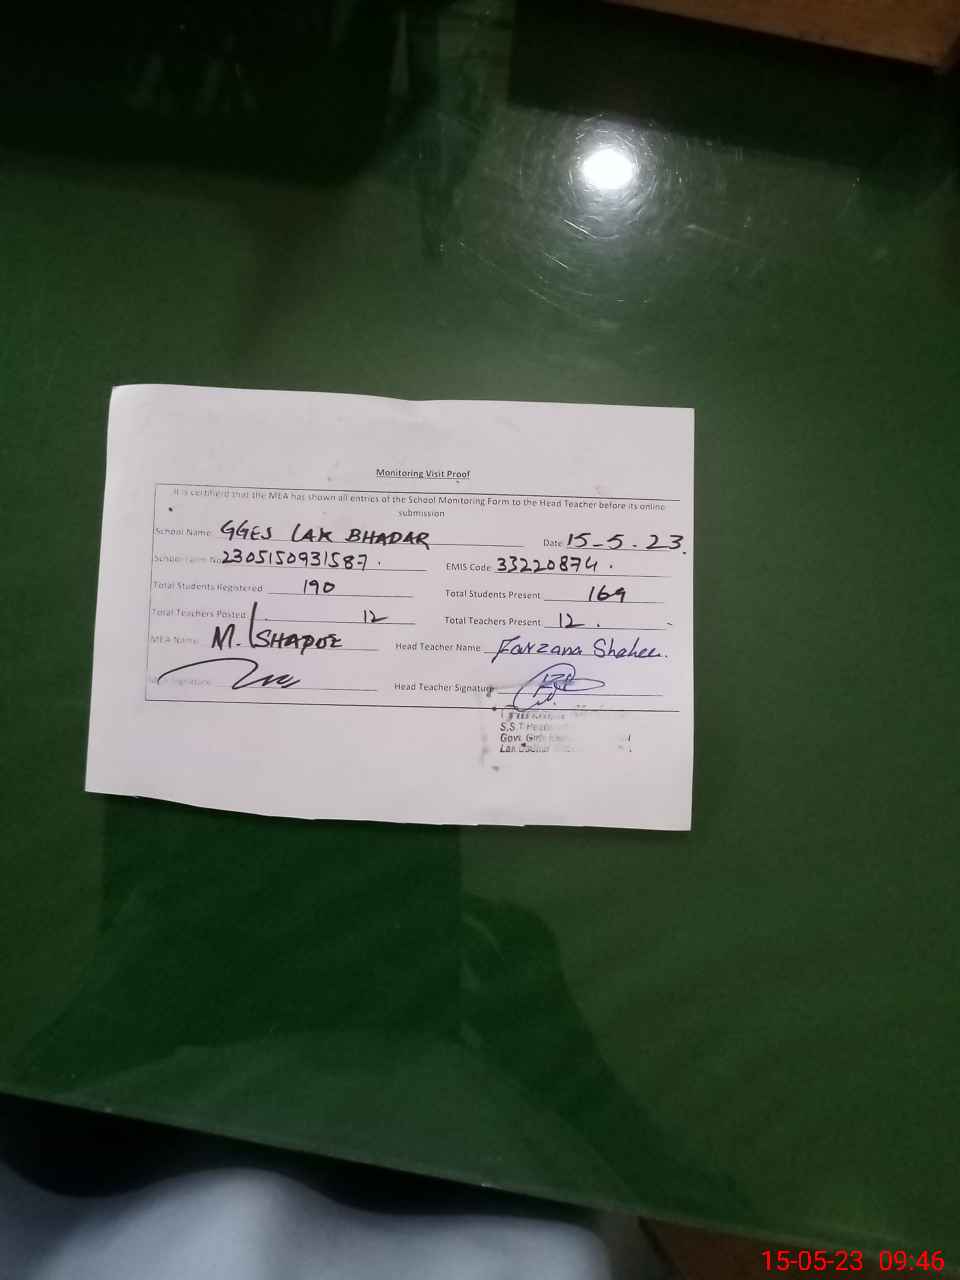 Monitoring Visit Proof
It is certifierd that the MEA has shown all entries of the School Monitoring Form to the Head Teacher before its online
submission
School Name GGES LAK BHADAR Date 15-5-23.
School Form No 2305150931587. EMIS Code 33220874.
Total Students Registered 190 Total Students Present 169
Total Teachers Posted 12 Total Teachers Present 12.
MEA Name M. Head Teacher Name Farzana Shaheen.
Signature Head Teacher Signature
S.S.T
Govt. Girls
Lak
15-05-23 09:46